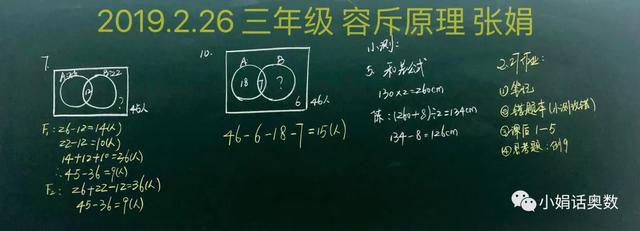 2019.2.26 三年级 容斥原理 张娟
7.
A=26
B=22
12
?
45人
F1: 26-12=14(人)
22-12=10(人)
14+12+10=36(人)
∴45-36=9(人)
F2: 26+22-12=36(人)
45-36=9(人)
10.
A
B
18
7
?
6
46人
46-6-18-7=15(人)
小测:
5. 和差公式
130×2=260cm
陈:(260+8)÷2=134cm
134-8=126cm
2.27作业:
①笔记
②错题本(小测改错)
③课后1-5
④思考题:例9
小娟话奥数